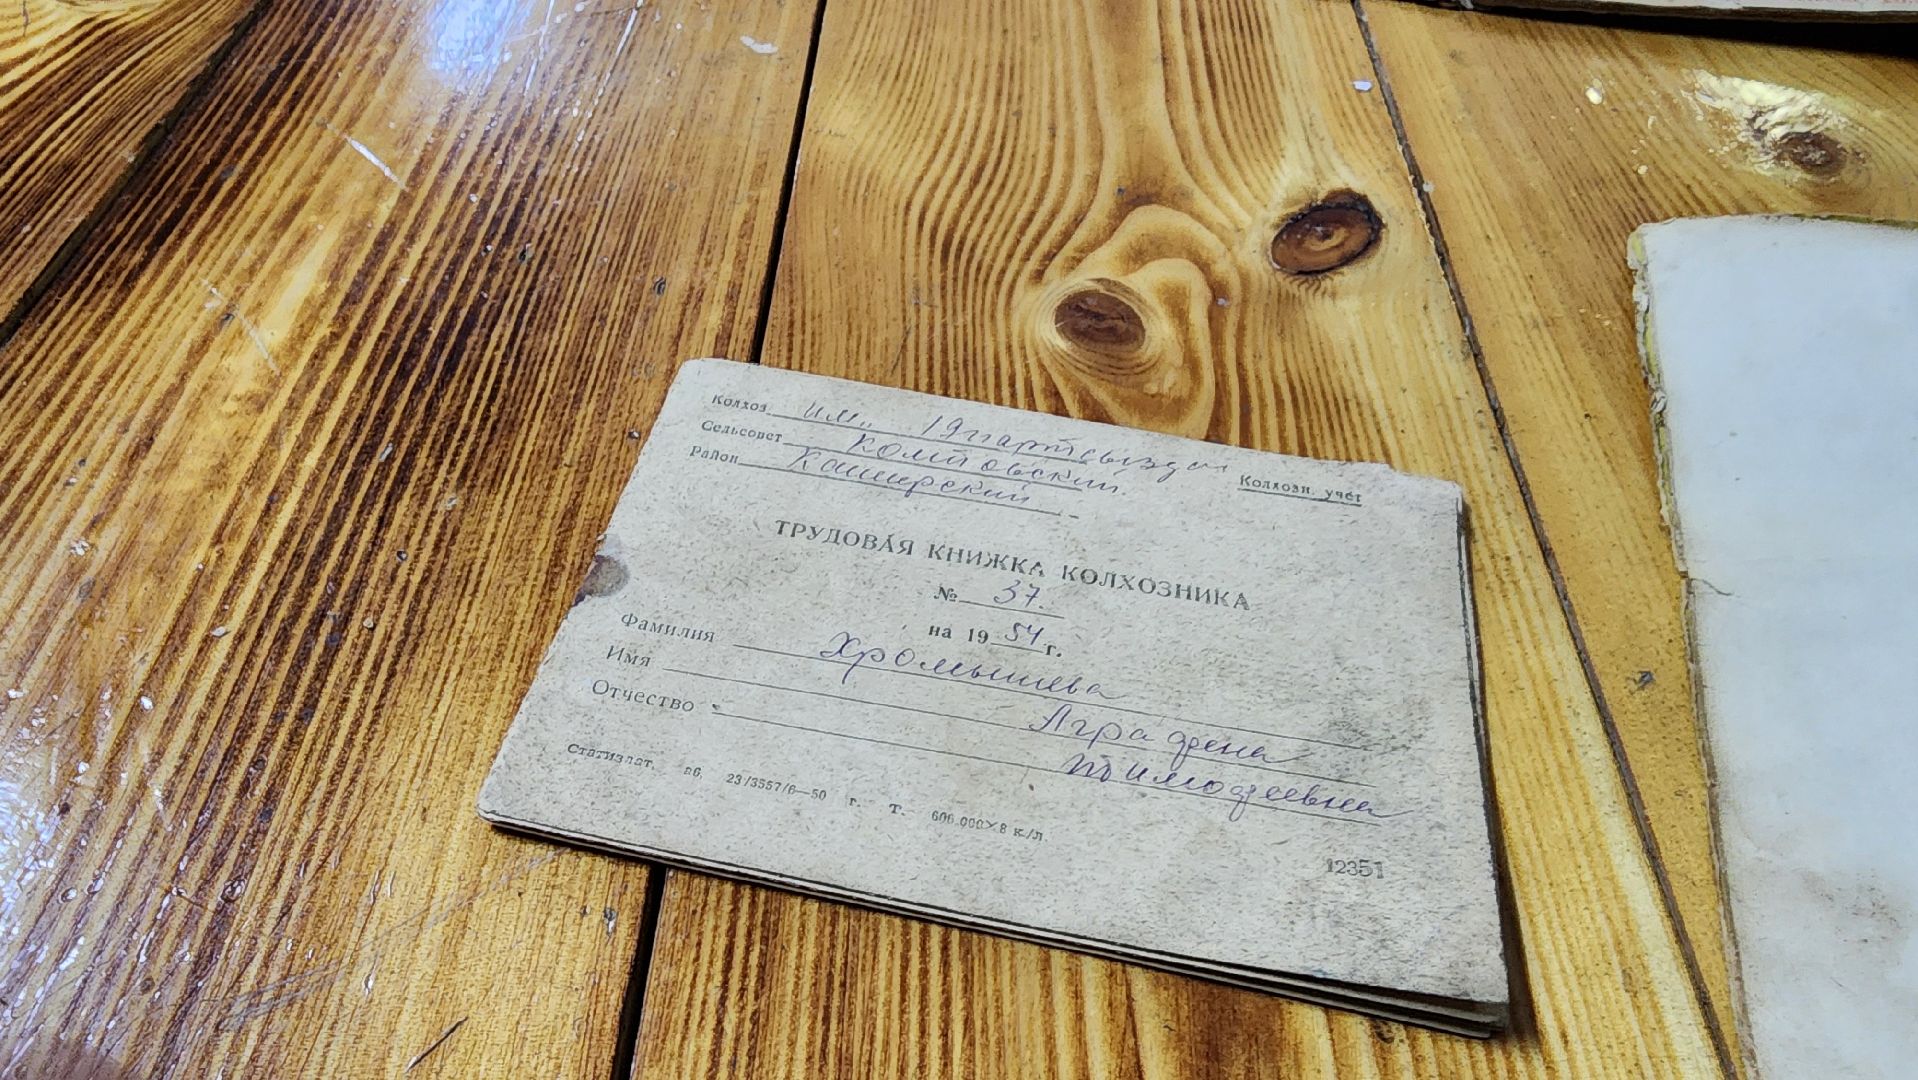 Колхоз им. 19 партсъезда
Сельсовет Колтовский
Район Каширский
Колхозн. учёт
ТРУДОВАЯ КНИЖКА КОЛХОЗНИКА
№ 37.
на 1954 г.
Фамилия Хромышева
Имя Аграфена
Отчество Тимофеевна
Статиздат, в6. 23/3557/6—50 г. т. 600.000×8 к/л
12351